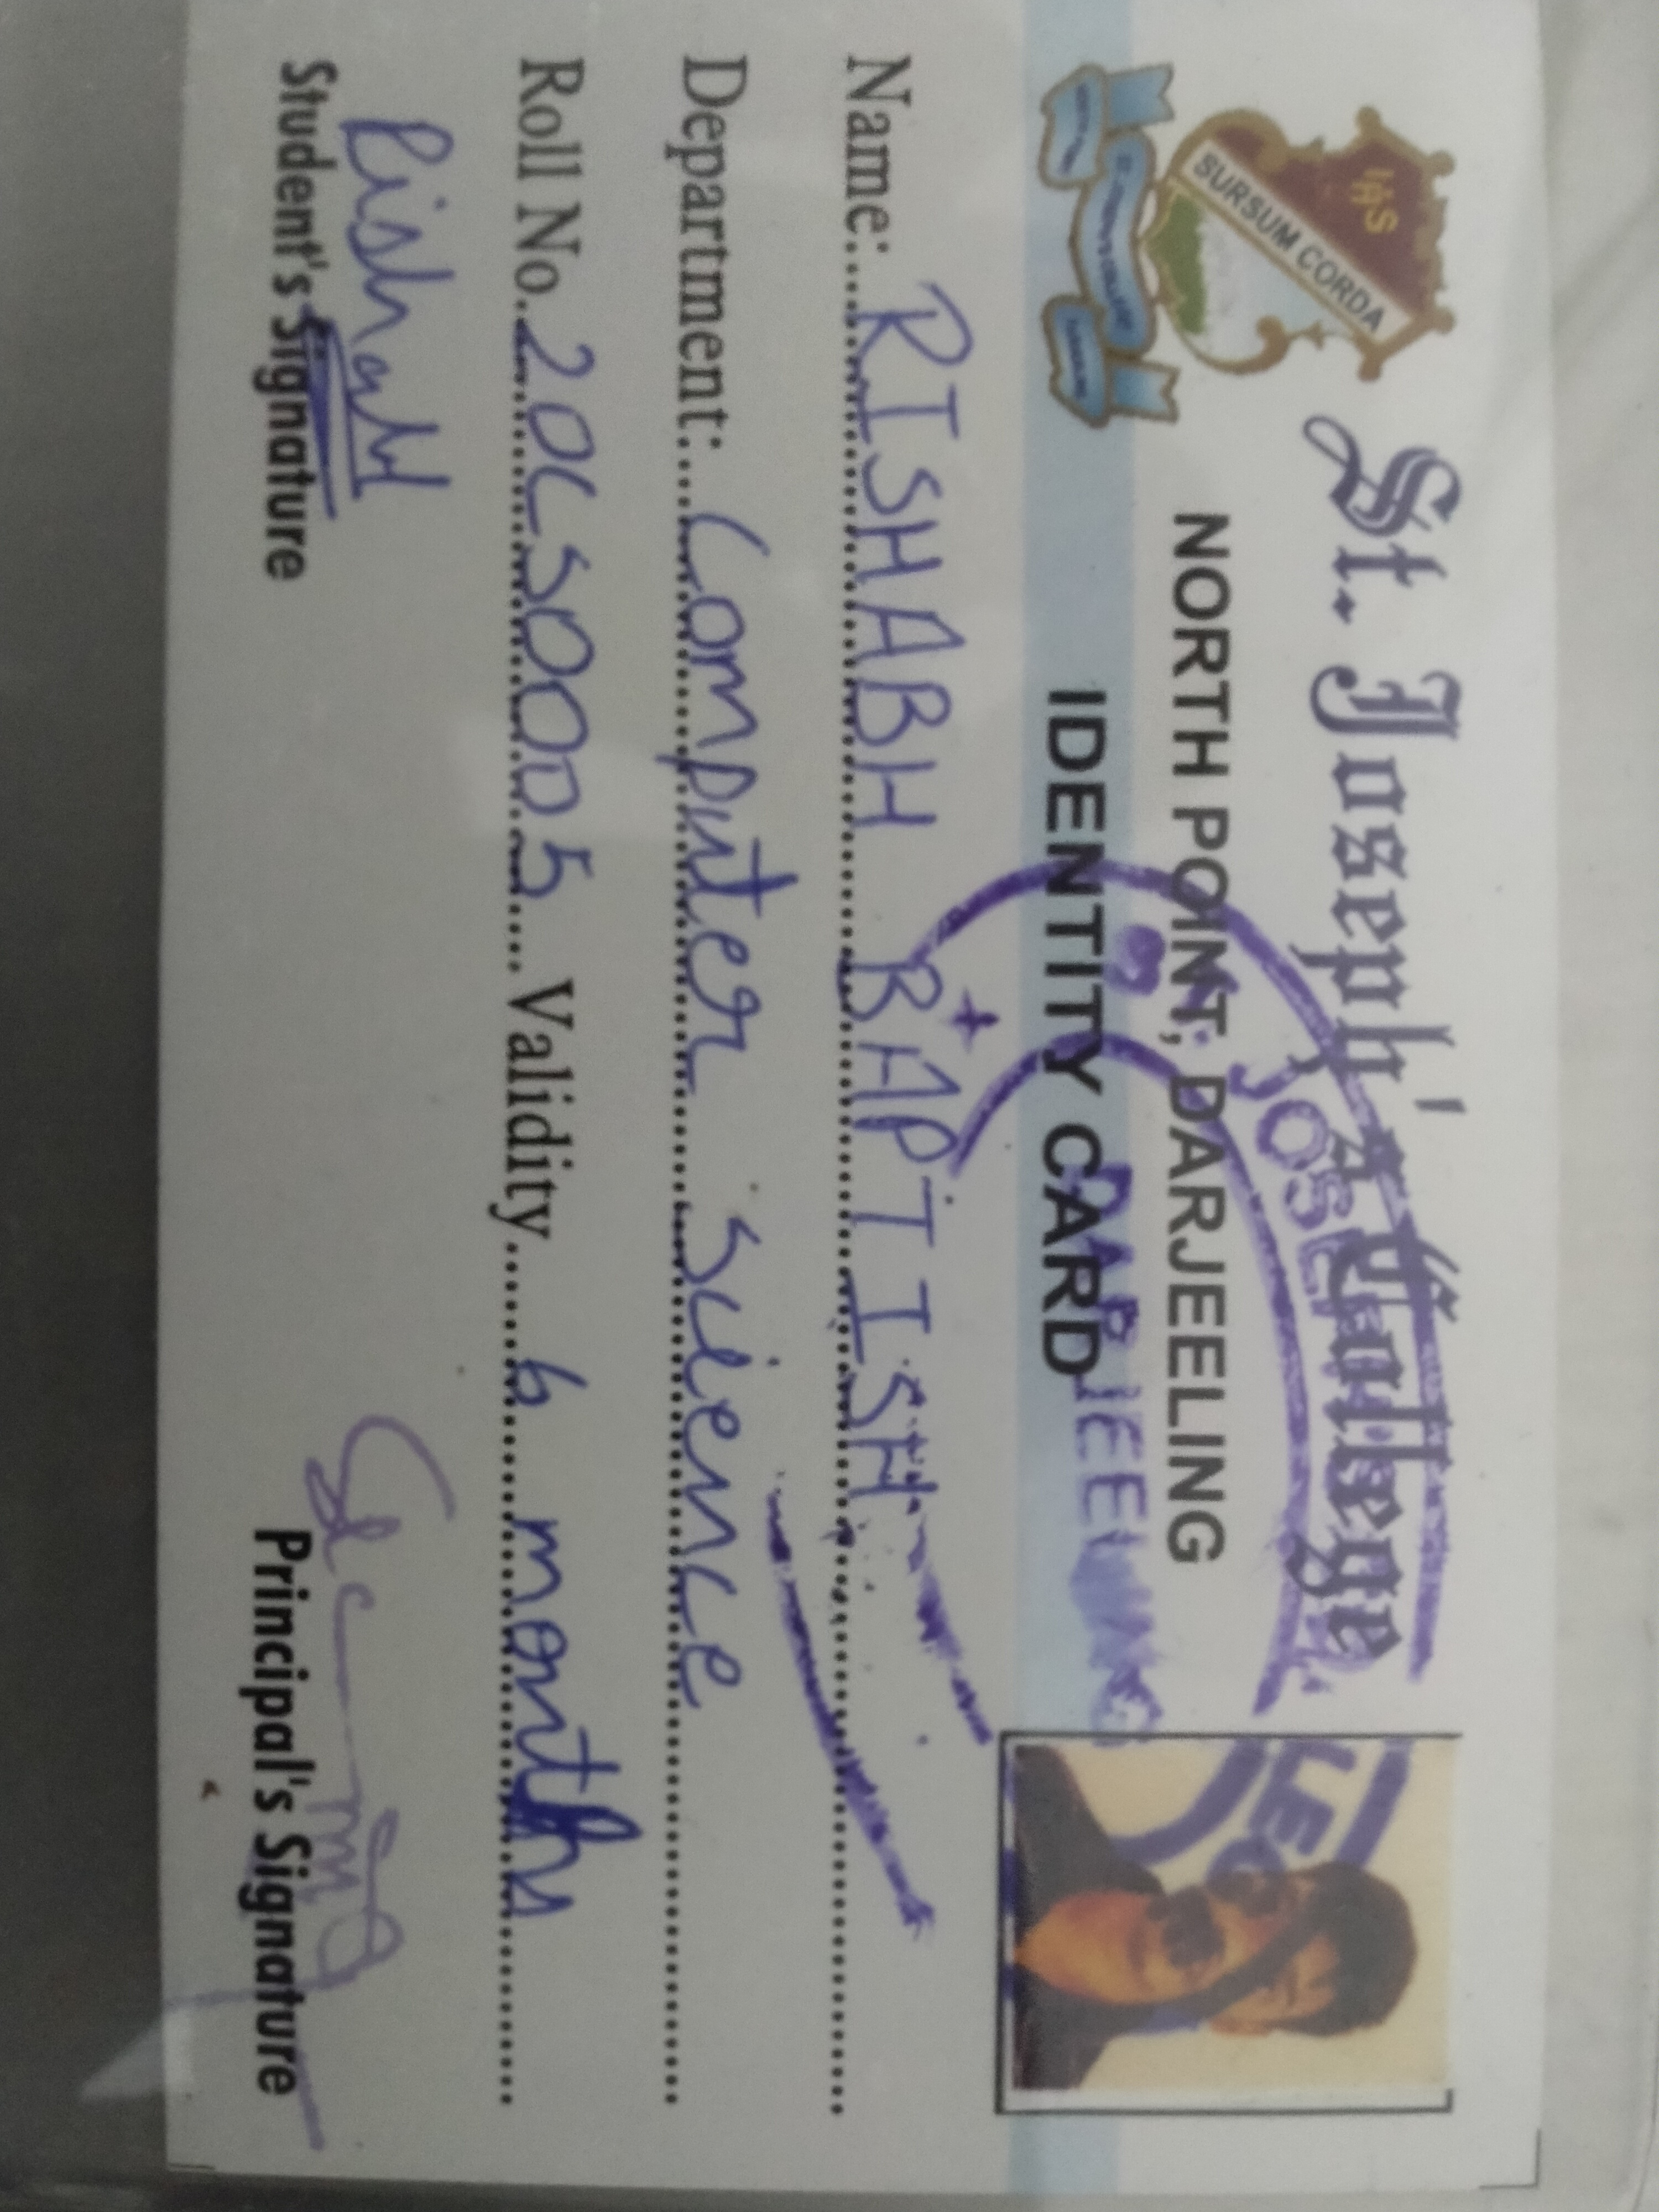 St. Joseph's College
NORTH POINT, DARJEELING
IDENTITY CARD
IHS
SURSUM CORDA
ST. JOSEPH'S
DARJEELING
Name: RISHABH BAPTISH
Department: Computer Science
Roll No. 20CS0005 Validity 6 months
Rishabh
Student's Signature
Principal's Signature